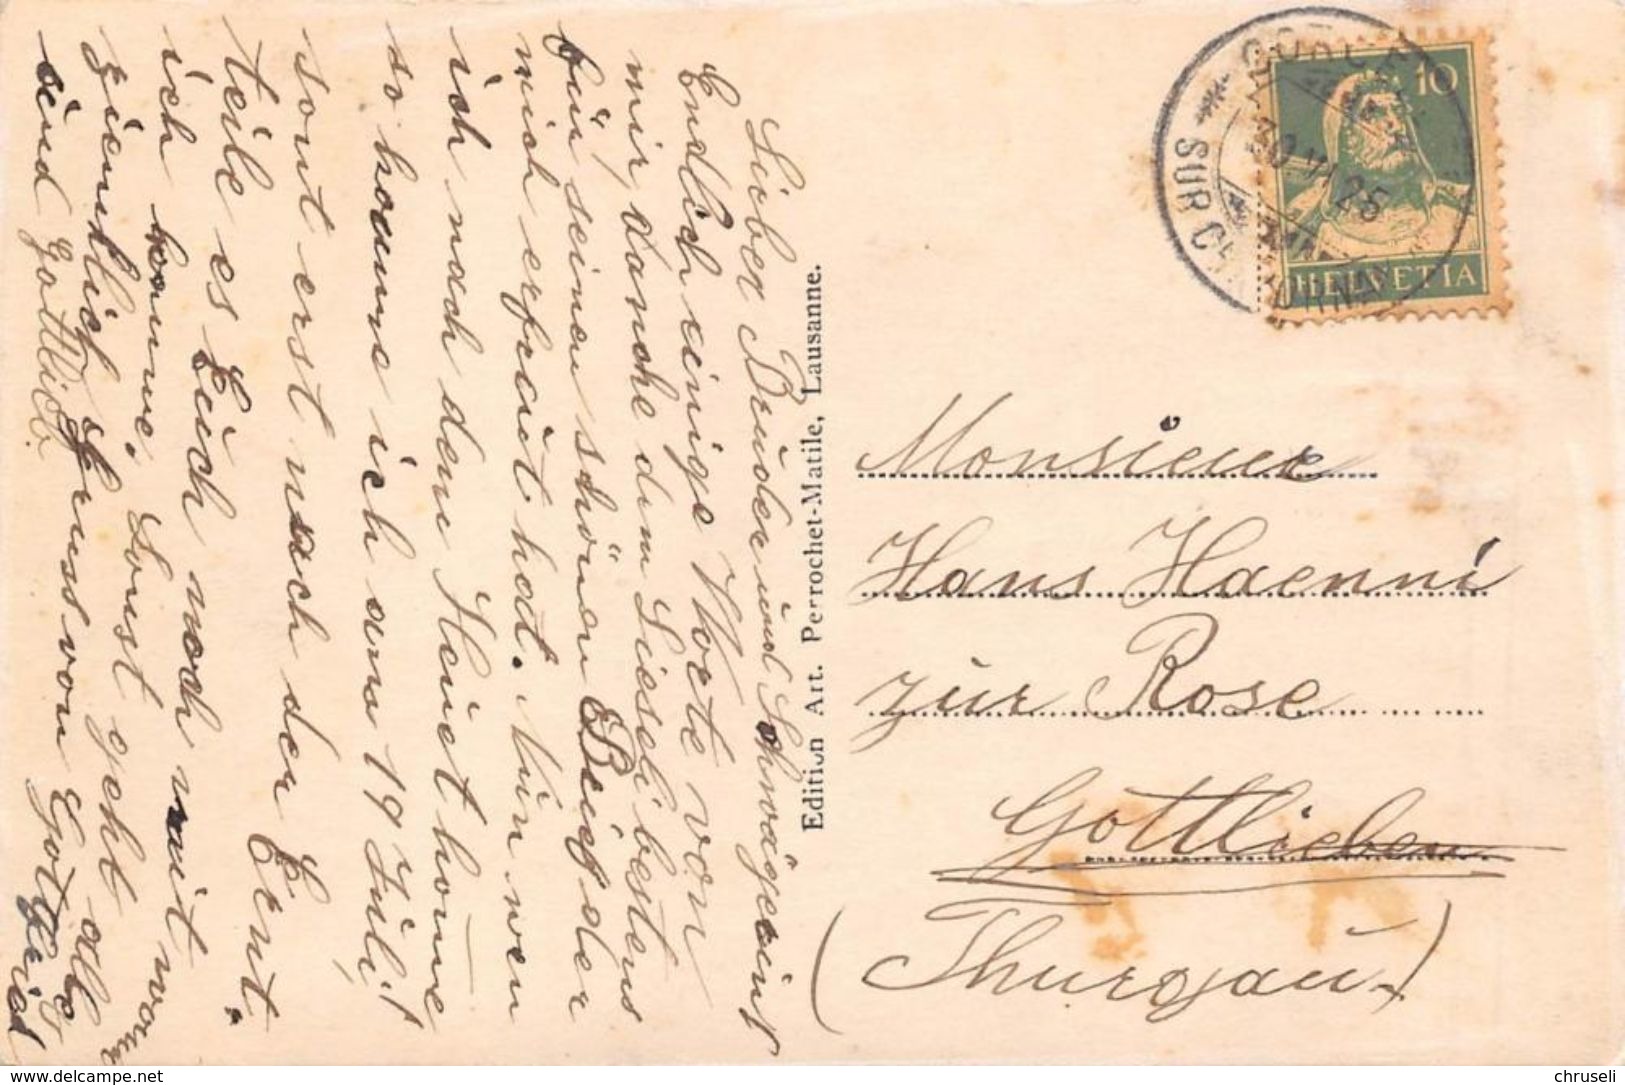 Lieber Brüder und Schwägerint
Endlich einige Worte von
mir, danche dem Liesseli bestens
für seinen schönen Brief der
mich erfreüt hod. bin wen
ich nach dem Heüet home
so komme ich am 19 Jüli
sont erst nach der Ernt.
teile es Eüch noch mit wann
ich komme. Sonst geht als
ziemtlich Gruss von Gotfried
sind Gottlieb.
Edition Art. Perrochet-Matile, Lausanne.
10
HELVETIA
VI 25
Monsieur
Hans Haenni
zür Rose
Göttlieben
(Thurgaü.)
© chruseli